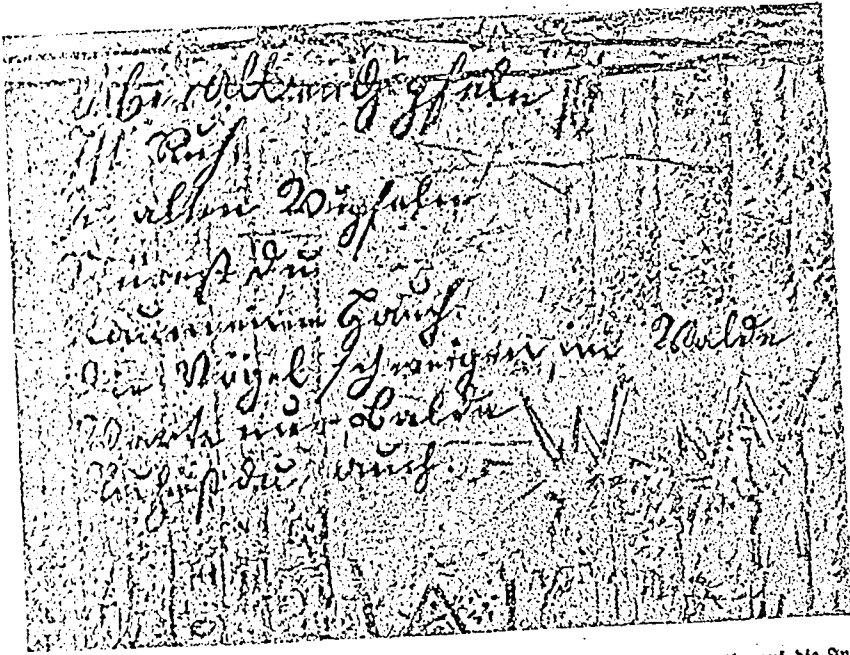 Über allen Gipfeln
Ist Ruh
In allen Wipfeln
Spürest Du
Kaum einen Hauch.
Die Vögel schweigen im Walde
Warte nur balde
Ruhest du auch.
die